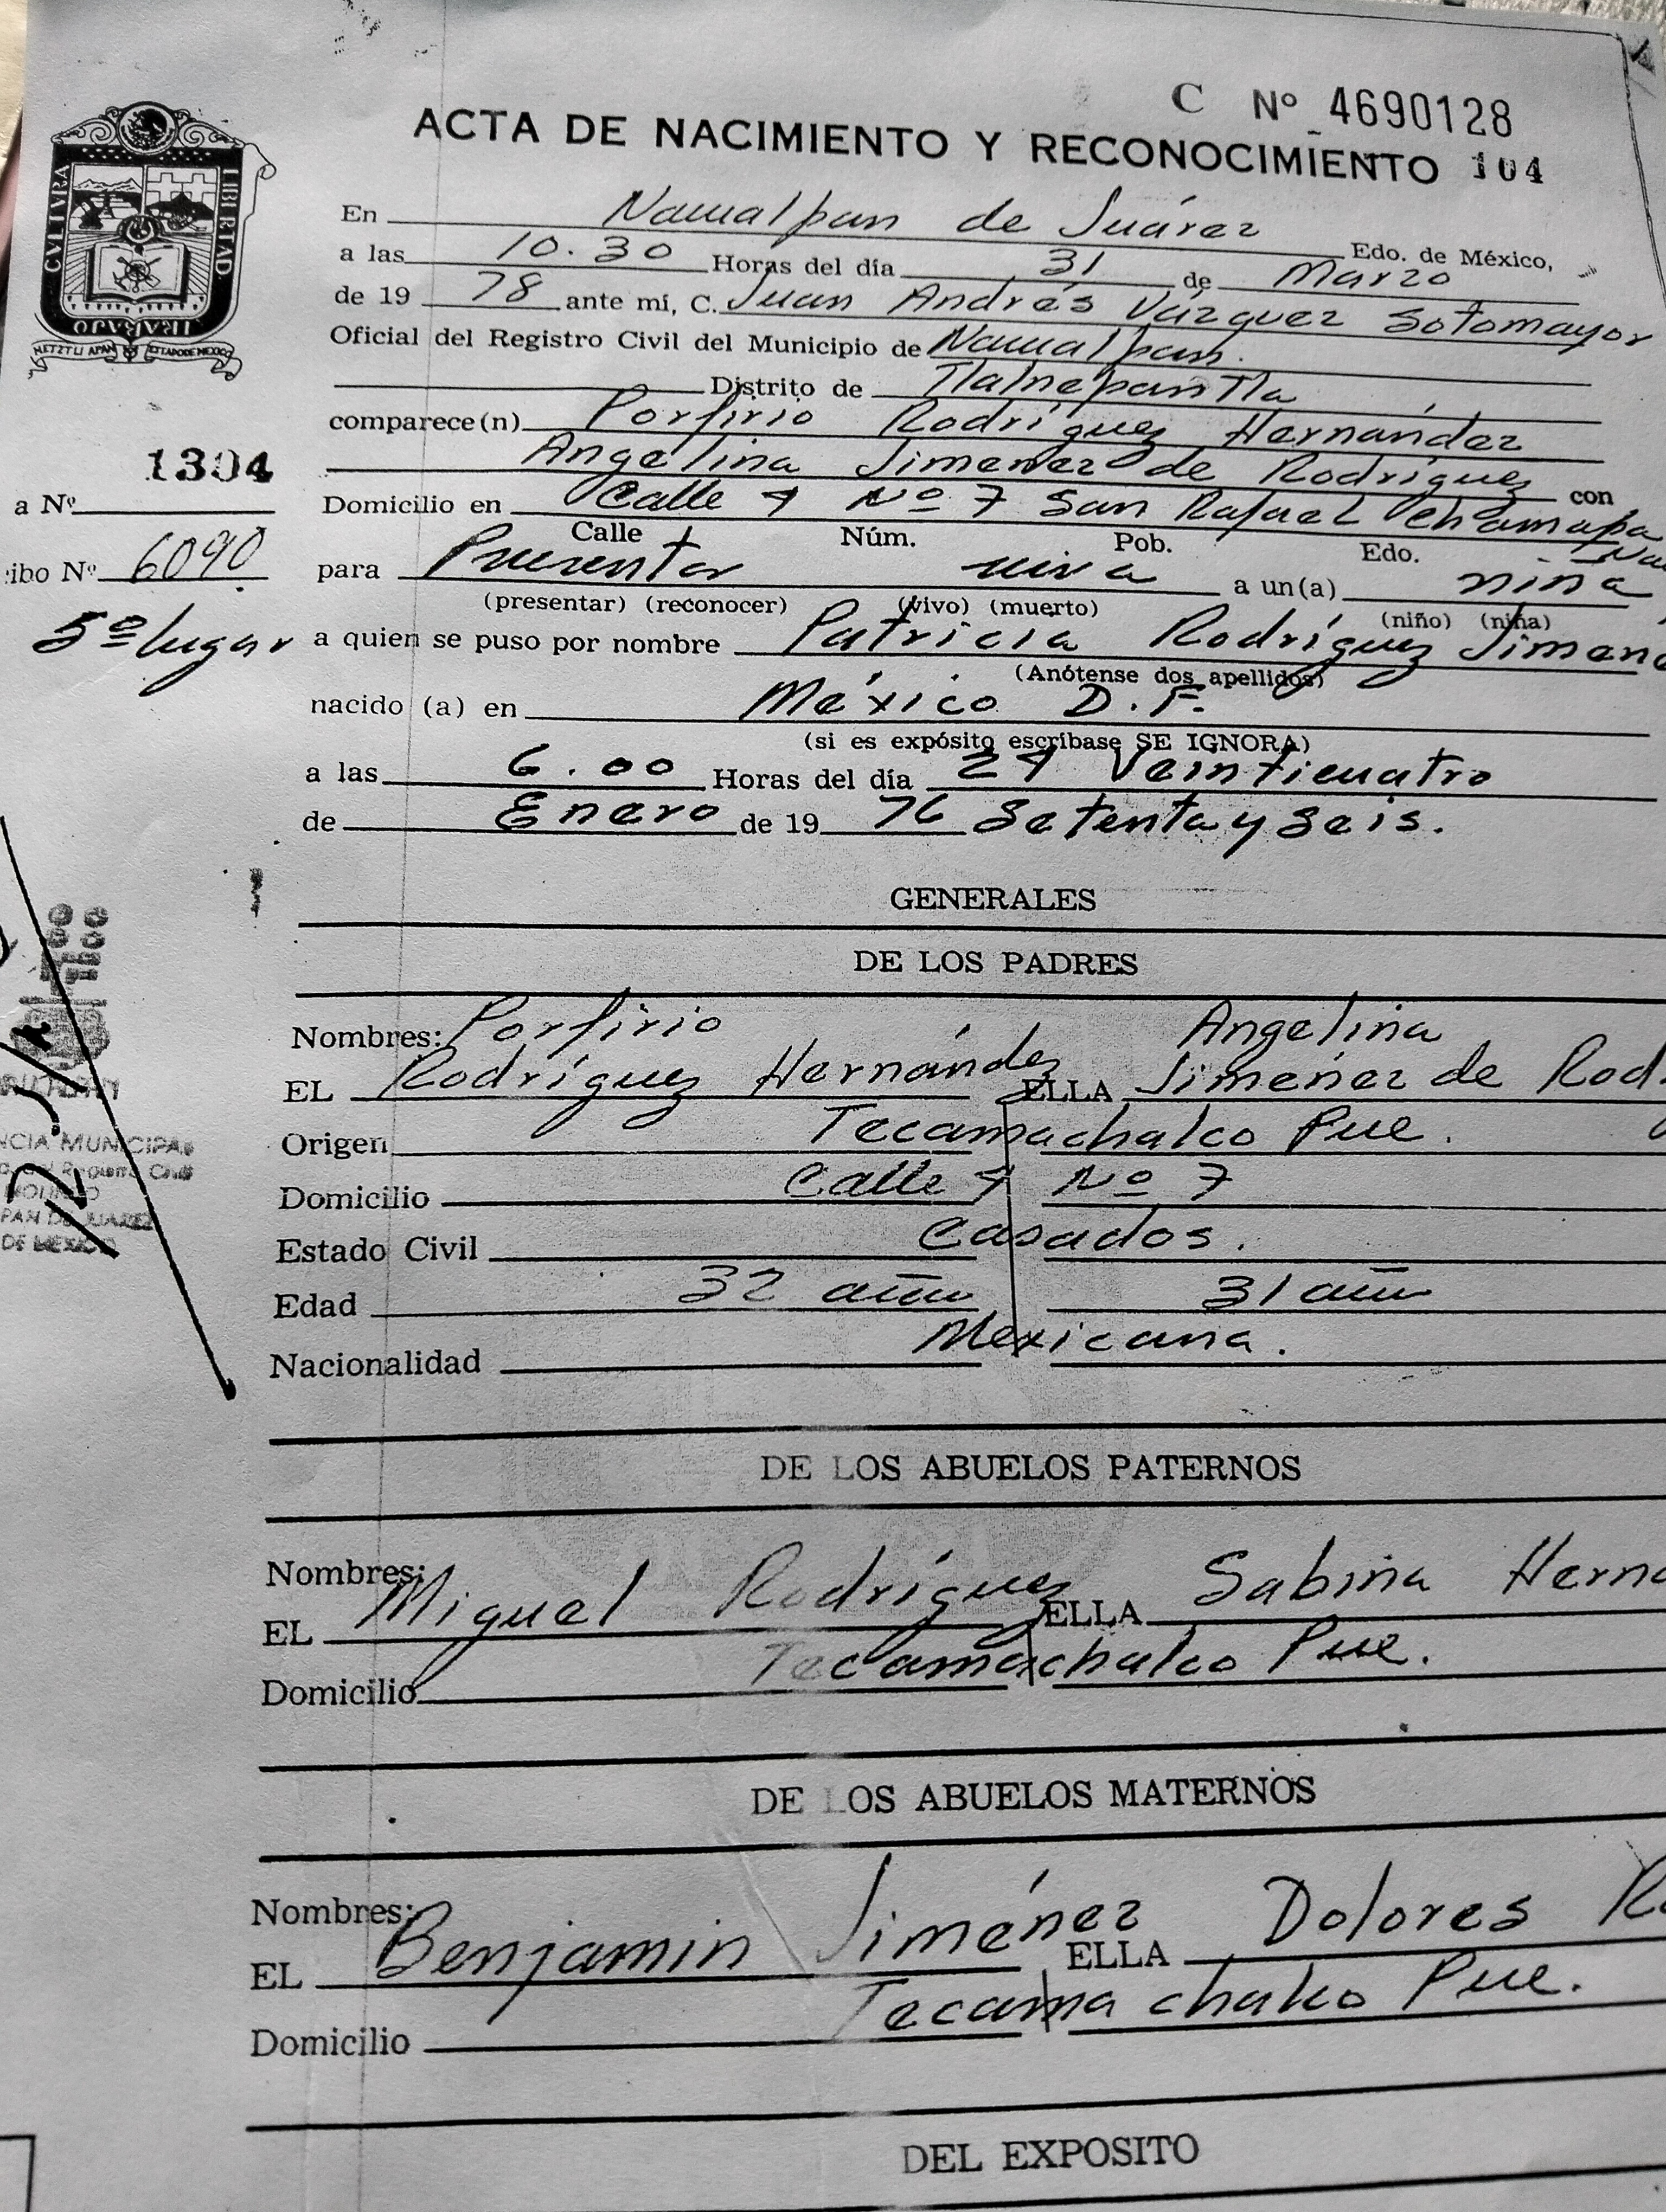 C Nº 4690128
ACTA DE NACIMIENTO Y RECONOCIMIENTO 104
CVLTVRA LIBERTAD
En Naucalpan de Juárez Edo. de México,
a las 10.30 Horas del día 31 de Marzo
de 19 78 ante mí, C. Juan Andrés Vázquez Sotomayor
Oficial del Registro Civil del Municipio de Naucalpan.
Distrito de Tlalnepantla
comparece(n) Porfirio Rodríguez Hernández
1304
Angelina Jimenez de Rodríguez con
a Nº
Domicilio en Calle 4 Nº 7 San Rafael Chamapa
Calle Núm. Pob. Edo.
ibo Nº 6090
para Presentar viva a un(a) niña
(presentar) (reconocer) (vivo) (muerto) (niño) (niña)
5º lugar
a quien se puso por nombre Patricia Rodríguez Jimen
(Anótense dos apellidos)
nacido (a) en México D.F.
(si es expósito escríbase SE IGNORA)
a las 6.00 Horas del día 24 Veinticuatro
de Enero de 19 76 Setenta y Seis.
GENERALES
DE LOS PADRES
Nombres: Porfirio Angelina
EL Rodríguez Hernández ELLA Jimenez de Rod
Origen Tecamachalco Pue.
NCIA MUNICIPAL
Domicilio Calle 4 Nº 7
PAN DE JUAREZ
DE MEXICO
Estado Civil Casados.
Edad 32 años 31 años
Nacionalidad Mexicana.
DE LOS ABUELOS PATERNOS
Nombres:
EL Miguel Rodríguez ELLA Sabina Herna
Domicilio Tecamachalco Pue.
DE LOS ABUELOS MATERNOS
Nombres:
EL Benjamin Jiménez ELLA Dolores R
Domicilio Tecamachalco Pue.
DEL EXPOSITO